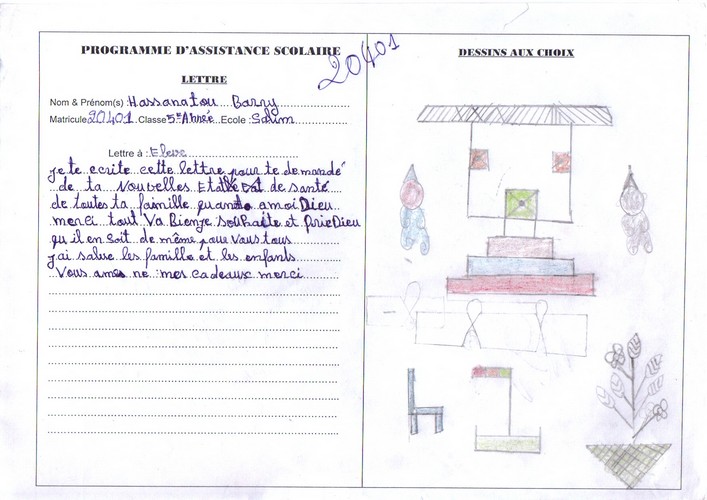 PROGRAMME D'ASSISTANCE SCOLAIRE
20401
LETTRE
Nom & Prénom(s) : Hassanatou Barry
Matricule 20401 Classe 5E Année Ecole : Salim
Lettre à : Eleve
je te ecrite cette lettre pour te demandé
de ta Nouvelles Etalé Eat de santé
de toutes ta faimille quand a moi Dieu
merci tout va Bienje souhaite et frie Dieu
qu il en soit de même pour vous tous
j'ai salue les famille et les enfants
Vous ames ne mes cadeaux merci
DESSINS AUX CHOIX